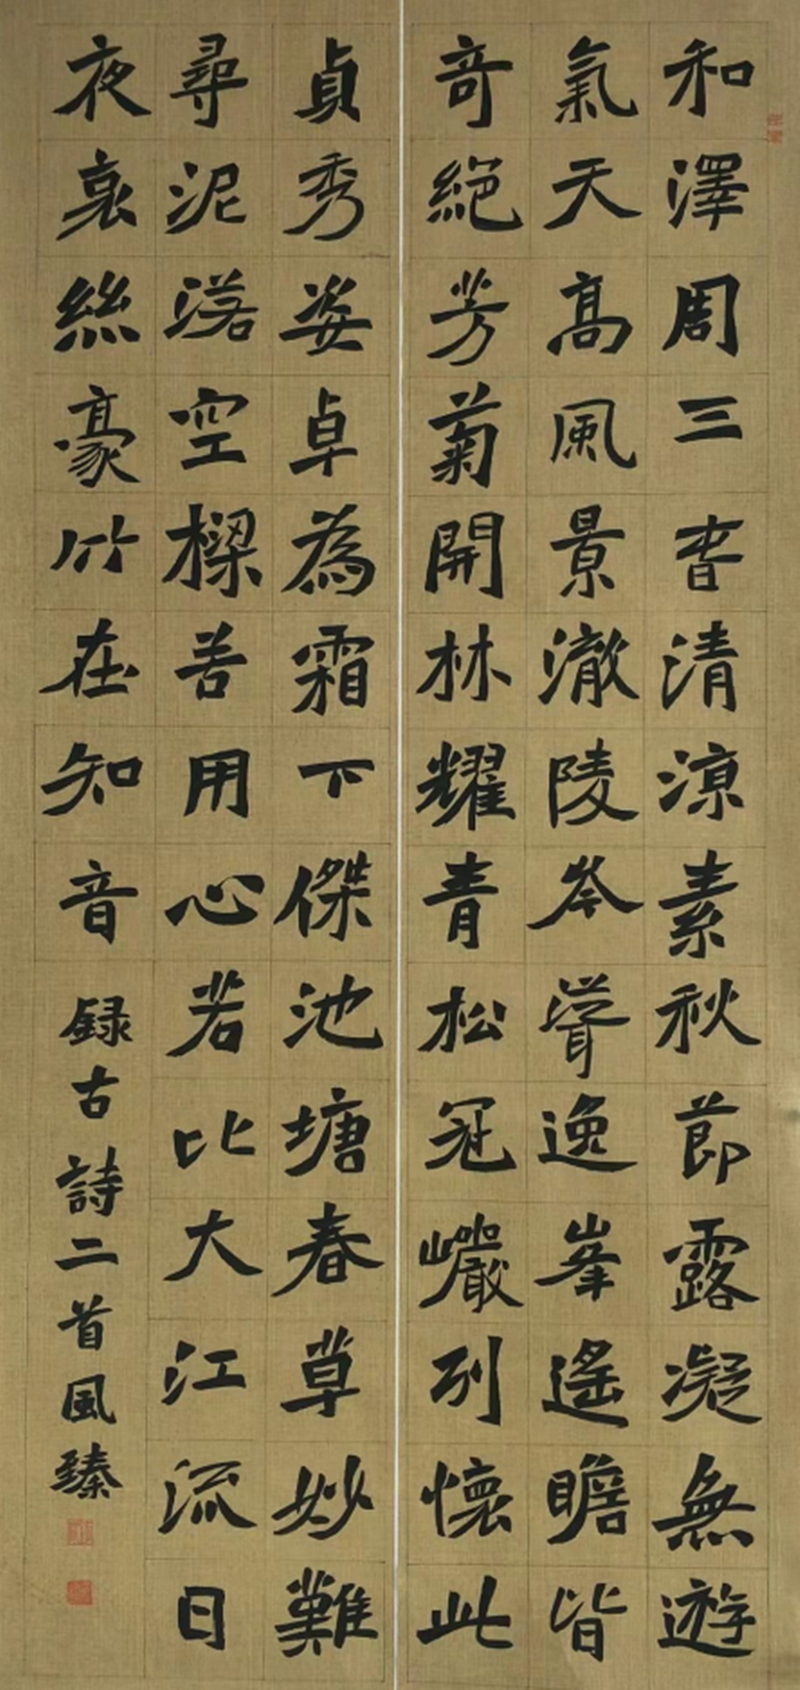 和澤周三旾清涼素秋節露凝無遊
氣天髙風景澈陵岑聳逸峯遙瞻皆
奇絶芳菊開林耀青松冠巖列懷此
貞秀姿卓為霜下傑池塘春草妙難
尋泥落空樑苦用心若比大江流日
夜哀絲豪竹在知音
録古詩二首風臻